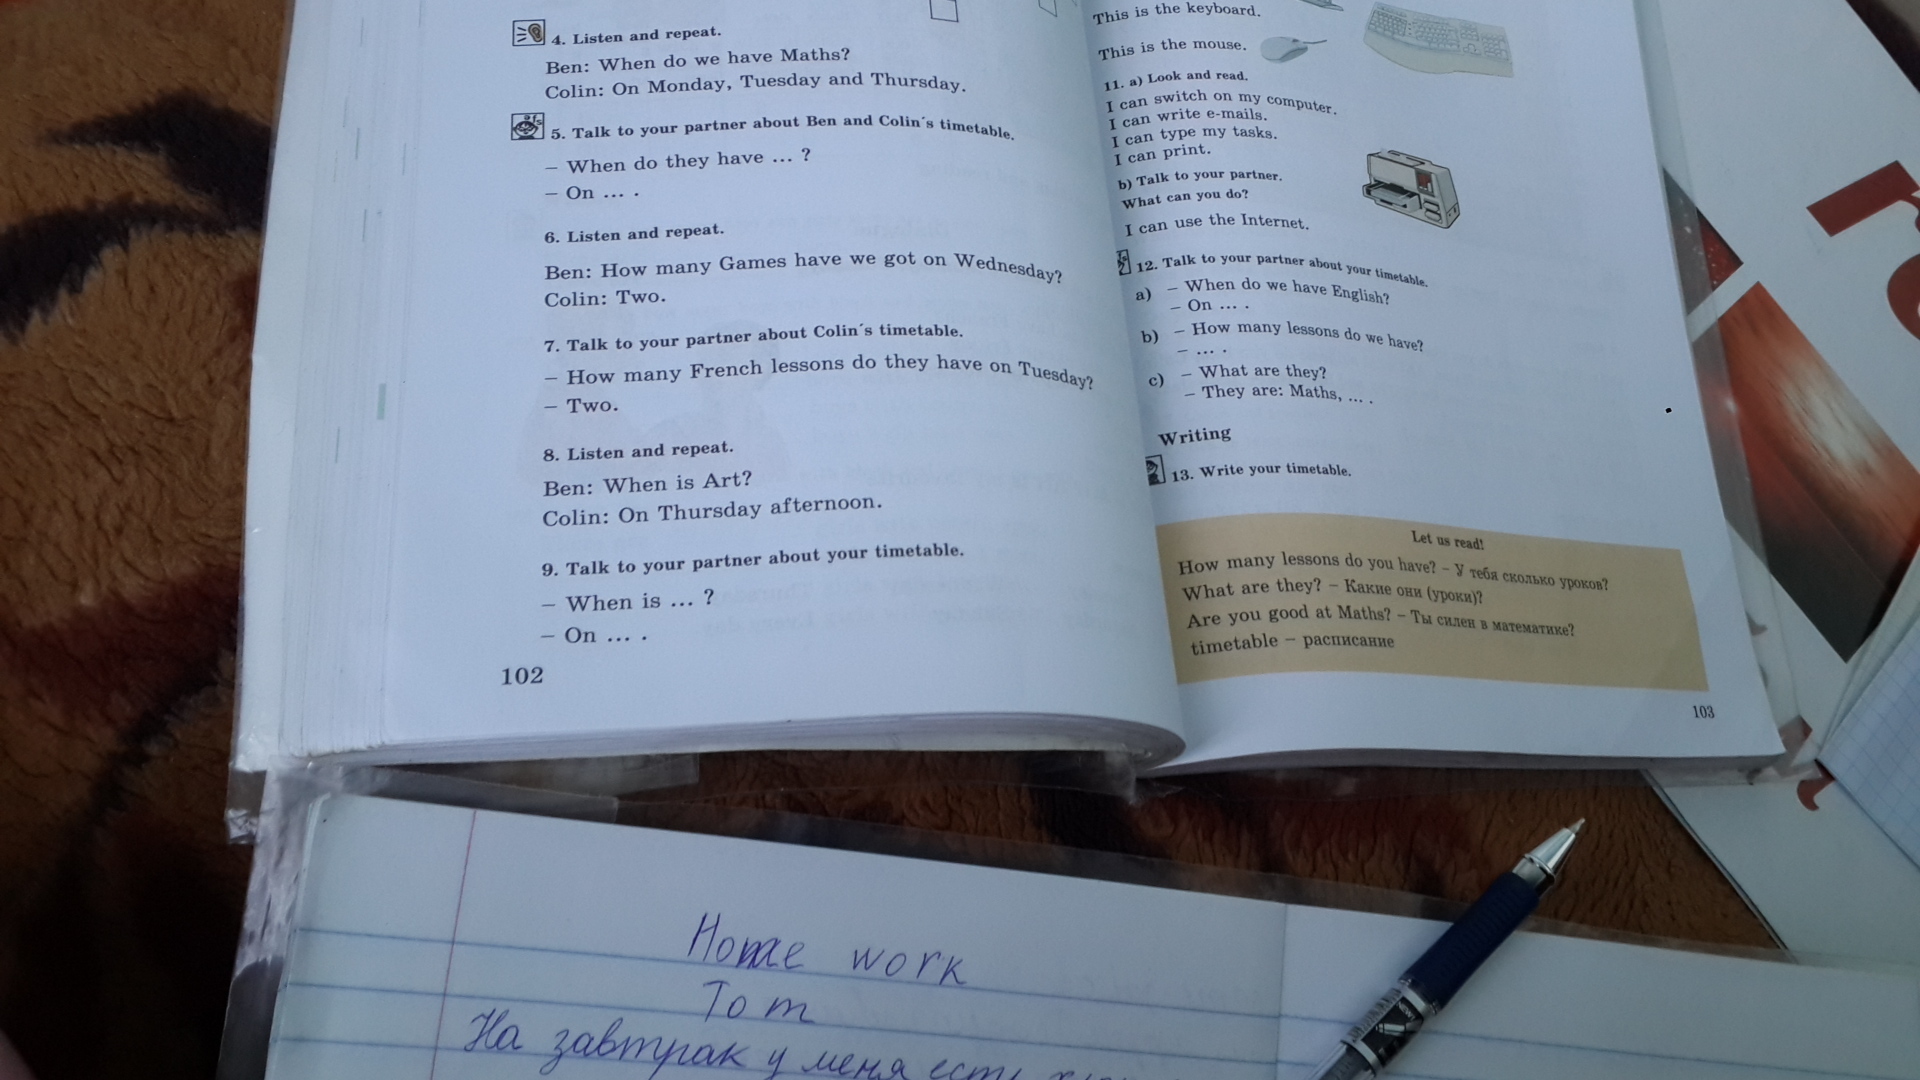 4. Listen and repeat.
Ben: When do we have Maths?
Colin: On Monday, Tuesday and Thursday.
5. Talk to your partner about Ben and Colin´s timetable.
– When do they have ... ?
– On ... .
6. Listen and repeat.
Ben: How many Games have we got on Wednesday?
Colin: Two.
7. Talk to your partner about Colin´s timetable.
– How many French lessons do they have on Tuesday?
– Two.
8. Listen and repeat.
Ben: When is Art?
Colin: On Thursday afternoon.
9. Talk to your partner about your timetable.
– When is ... ?
– On ... .
102
This is the keyboard.
This is the mouse.
11. a) Look and read.
I can switch on my computer.
I can write e-mails.
I can type my tasks.
I can print.
b) Talk to your partner.
What can you do?
I can use the Internet.
12. Talk to your partner about your timetable.
a) – When do we have English?
– On ... .
b) – How many lessons do we have?
– ... .
c) – What are they?
– They are: Maths, ... .
Writing
13. Write your timetable.
Let us read!
How many lessons do you have? – У тебя сколько уроков?
What are they? – Какие они (уроки)?
Are you good at Maths? – Ты силен в математике?
timetable – расписание
103
Home work
Tom
На завтрак у меня есть